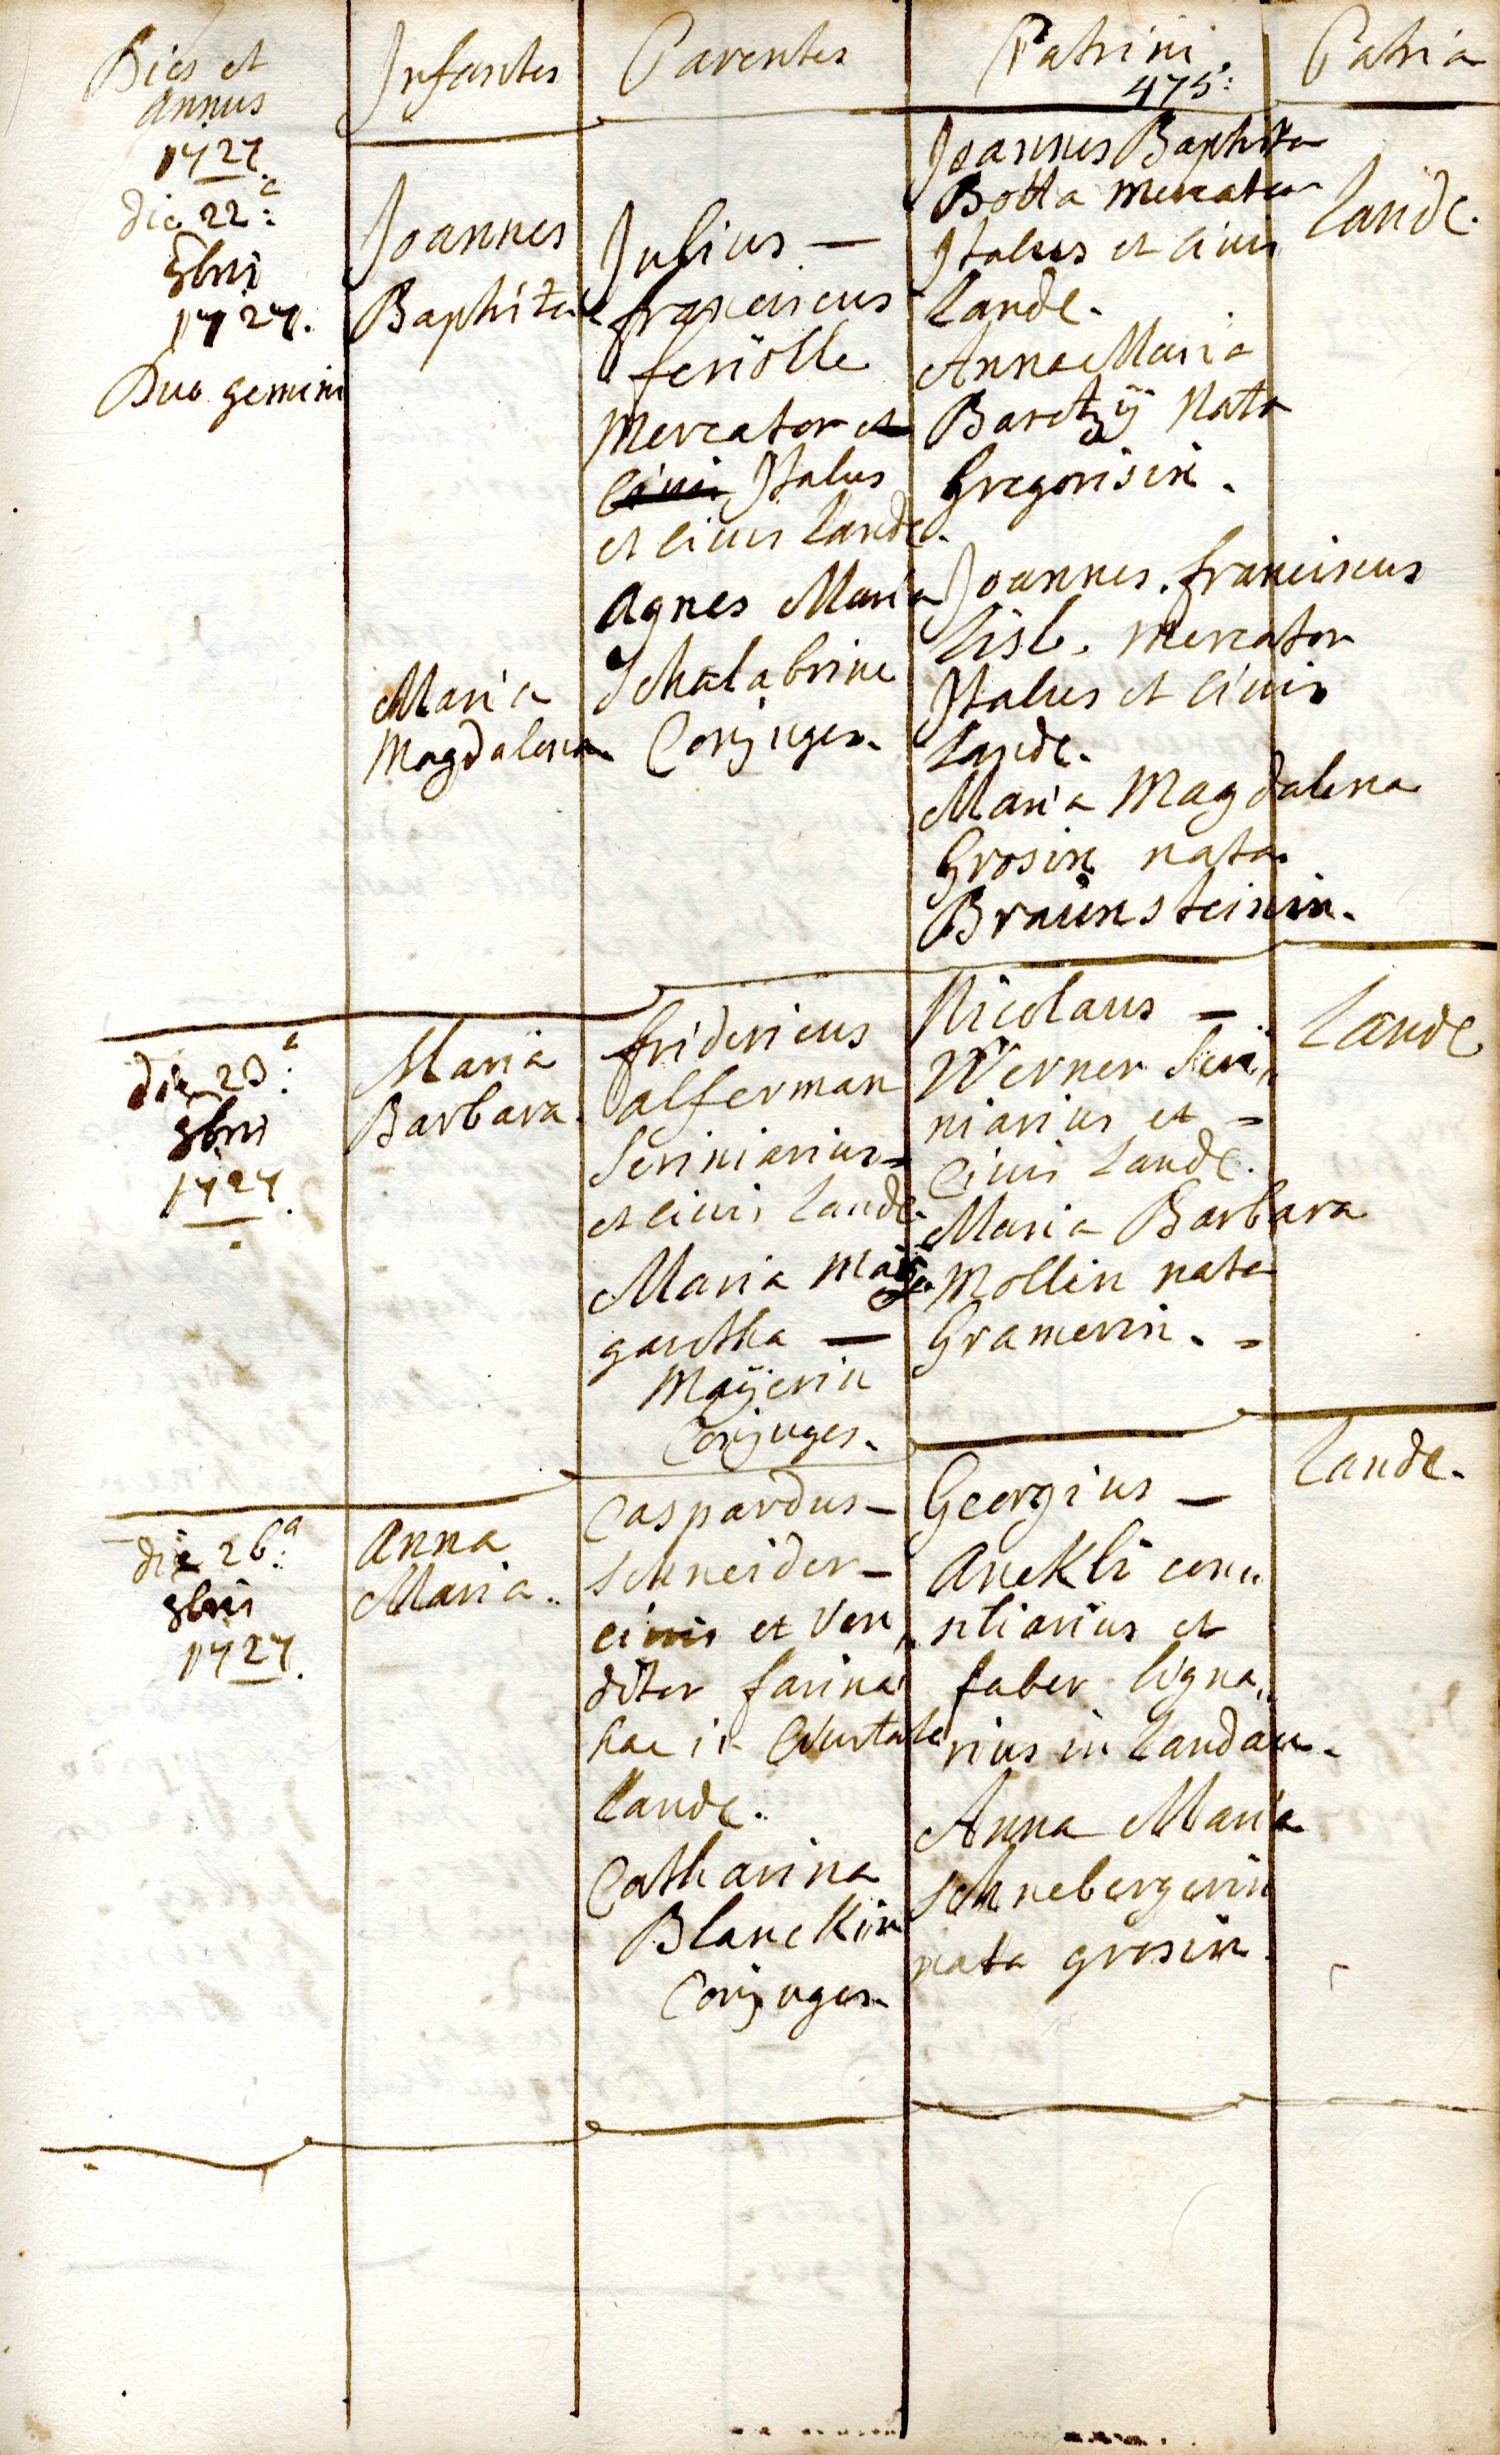 Dies et
annus
1727.
Infantes
Parentes
Patrini
475:
Patria
die 22:a
9bris
1727.
Duo gemini
Joannes
Baphista
Maria
Magdalena
Julius —
franciscus
feriolle
Mercator et
Civis Italus
et civis Landę.
Agnes Maria
Schalabrine
Conjuges.
Joannes Baphista
Botta Mercator
Italus et civis
Landę.
Anna Maria
Baretzÿ Nata
Gregorisin.
Joannes franciscus
Lisb. Mercator
Italus et civis
Landę.
Maria Magdalena
Grosin nata
Braunsteinin.
Landę.
die 23:a
9bris
1727.
Maria
Barbara.
fridericus
alferman
Scriniarius =
et civis Landę.
Maria Mar
garetha —
Maÿerin
Conjuges.
Nicolaus —
Werner Scri„
niarius et =
Civis Landę.
Maria Barbara
Mollin nata
Gramerin. =
Landę
die 26:a
9bris
1727.
Anna
Maria..
Caspardus —
Schneider —
civis et Ven„
ditor farina
hac in Civitate
Landę.
Catharina
Blanckin
Conjuges.
Georgius —
Anckli con„
siliarius et
faber ligna„
rius in Landau.
Anna Maria
Schnebergerin
nata grosin.
Landę.